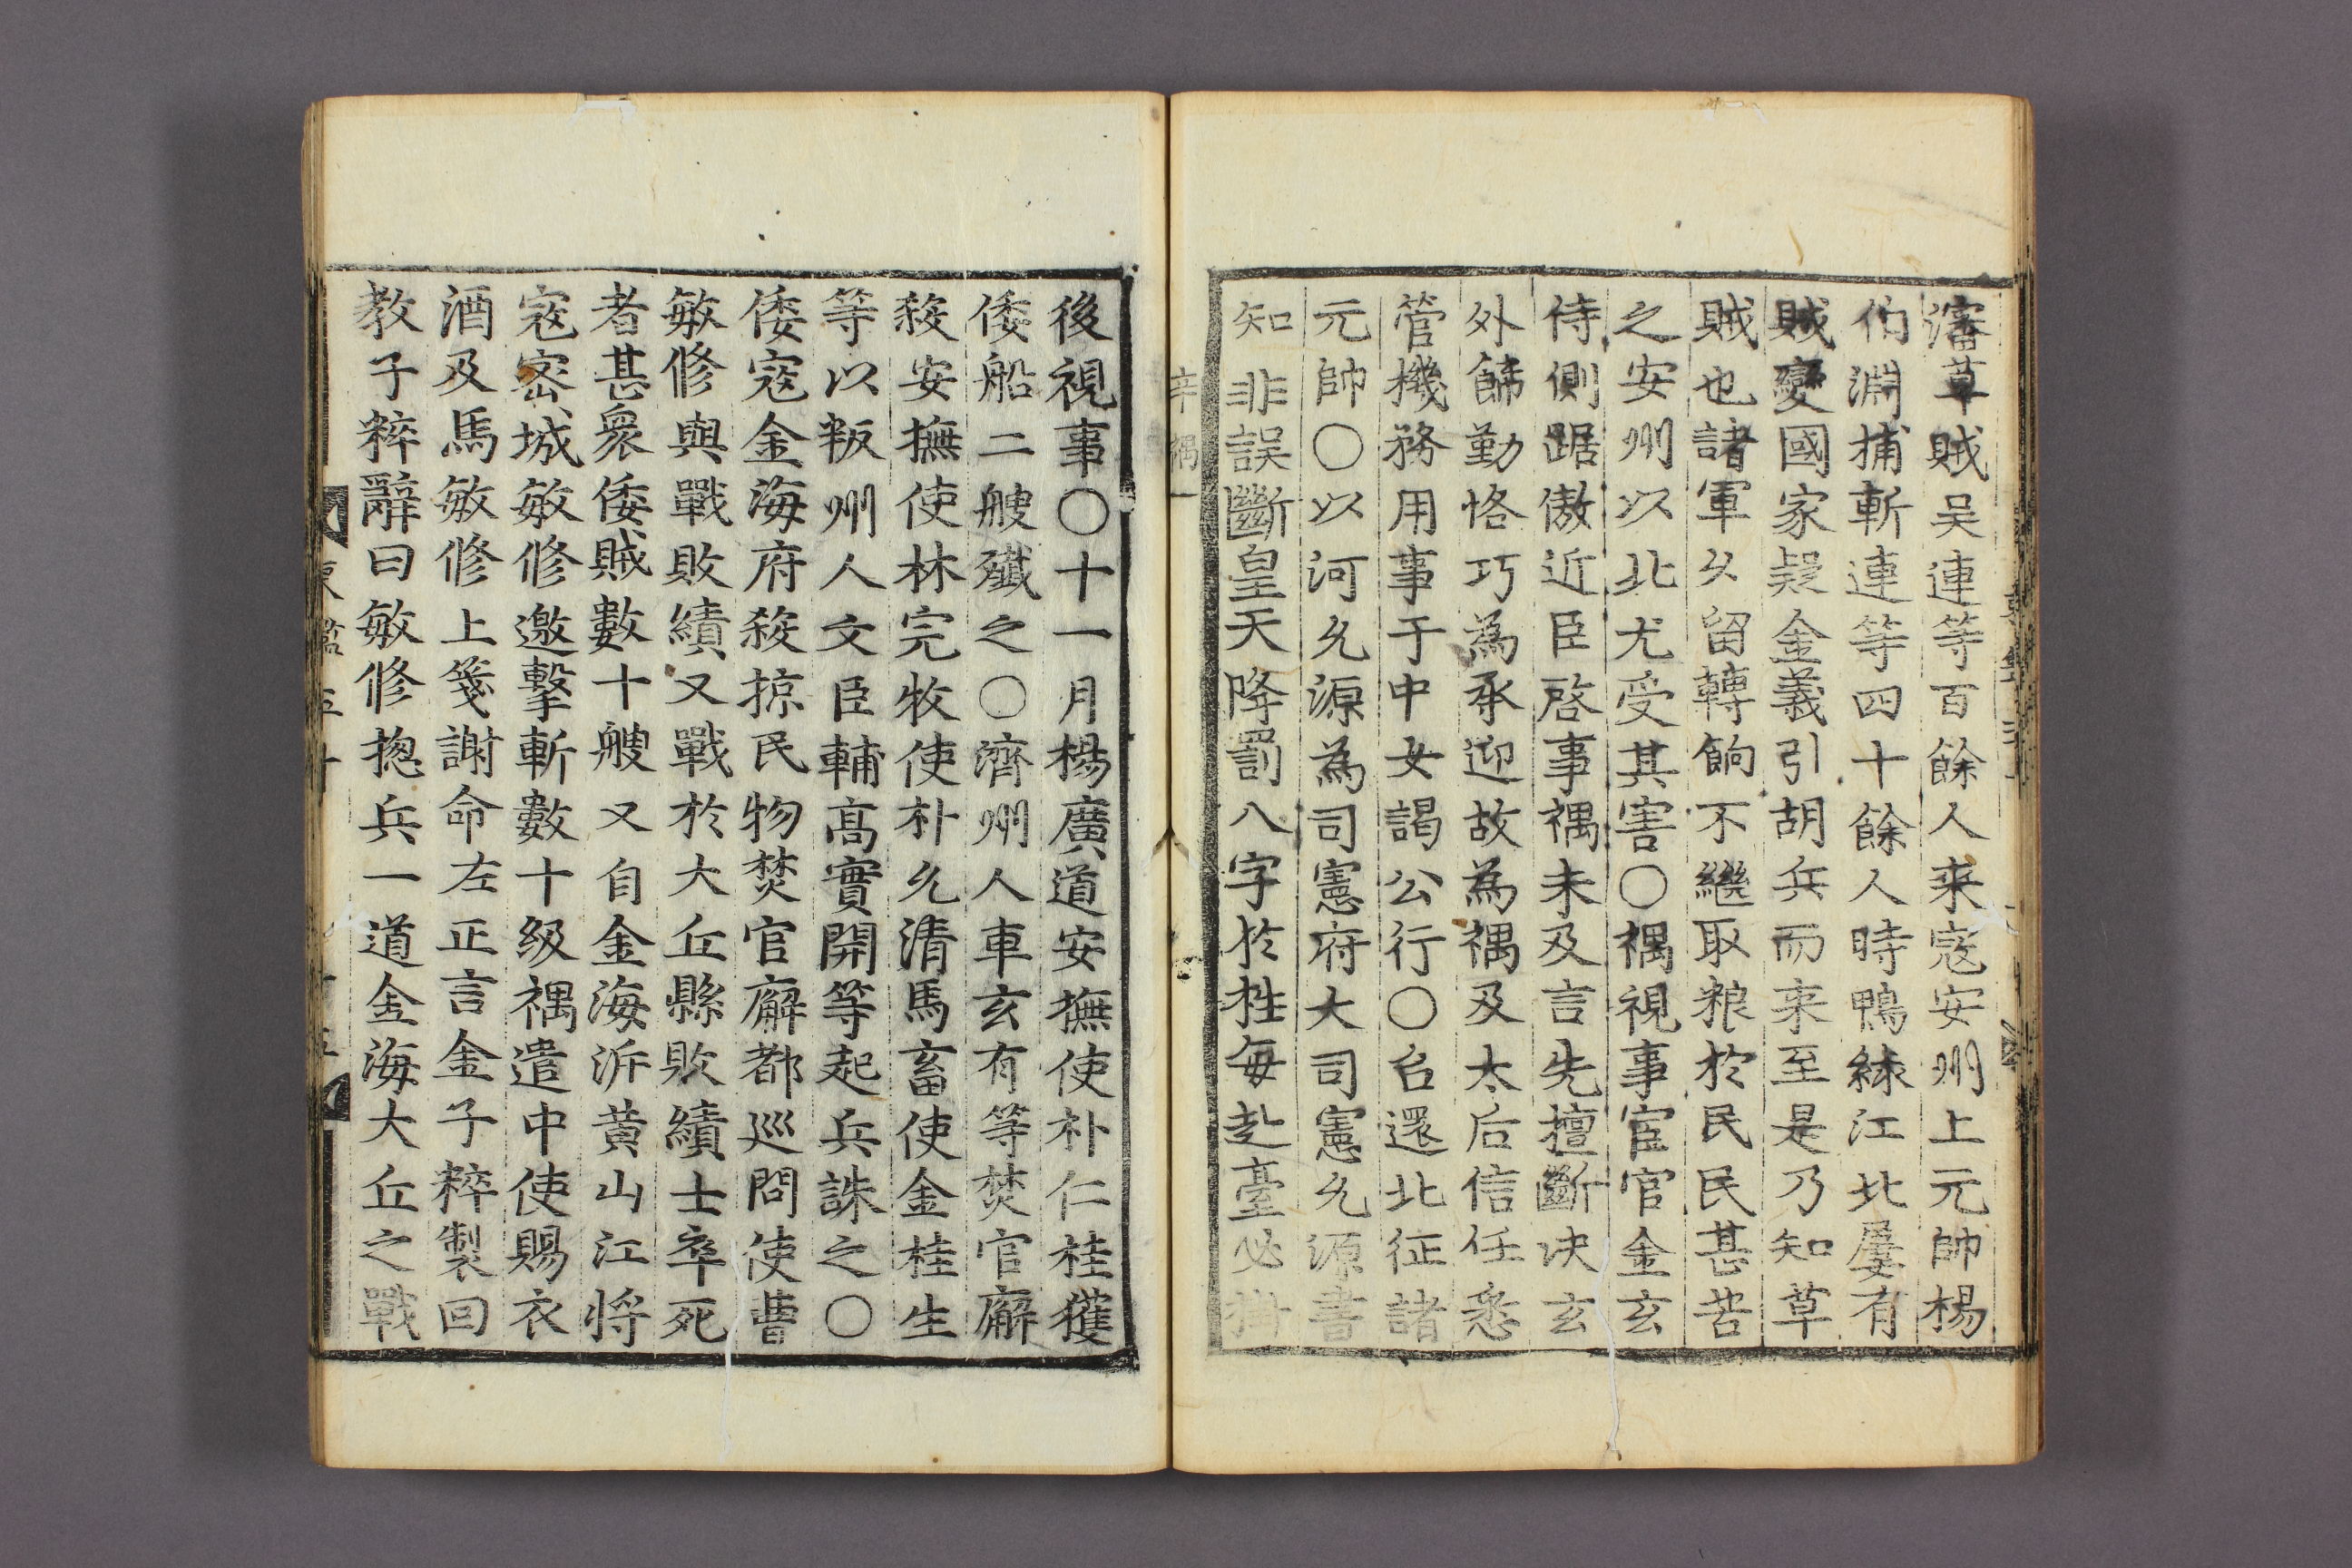 瀋草賊吴連等百餘人来寇安州上元帥楊
伯淵捕斬連等四十餘人時鴨綠江北屢有
賊變國家疑金義引胡兵而来至是乃知草
賊也諸軍久留轉餉不繼取粮於民民甚苦
之安州以北尤受其害○禑視事宦官金玄
侍側踞傲近臣啓事禑未及言先擅斷决玄
外飾勤恪巧為承迎故為禑及太后信任悉
管機務用事于中女謁公行○召還北征諸
元帥○以河允源為司憲府大司憲允源書
知非誤斷皇天降罰八字於牲每赴臺必掛
辛禑一
後視事○十一月楊廣道安撫使朴仁桂獲
倭船二艘殲之○濟州人車玄有等焚官廨
殺安撫使林完牧使朴允清馬畜使金桂生
等以叛州人文臣輔高實開等起兵誅之○
倭寇金海府殺掠民物焚官廨都巡問使曹
敏修與戰敗績又戰於大丘縣敗績士卒死
者甚衆倭賊數十艘又自金海泝黄山江将
寇密城敏修邀擊斬數十級禑遣中使賜衣
酒及馬敏修上箋謝命左正言金子粹製回
教子粹辭曰敏修摠兵一道金海大丘之戰